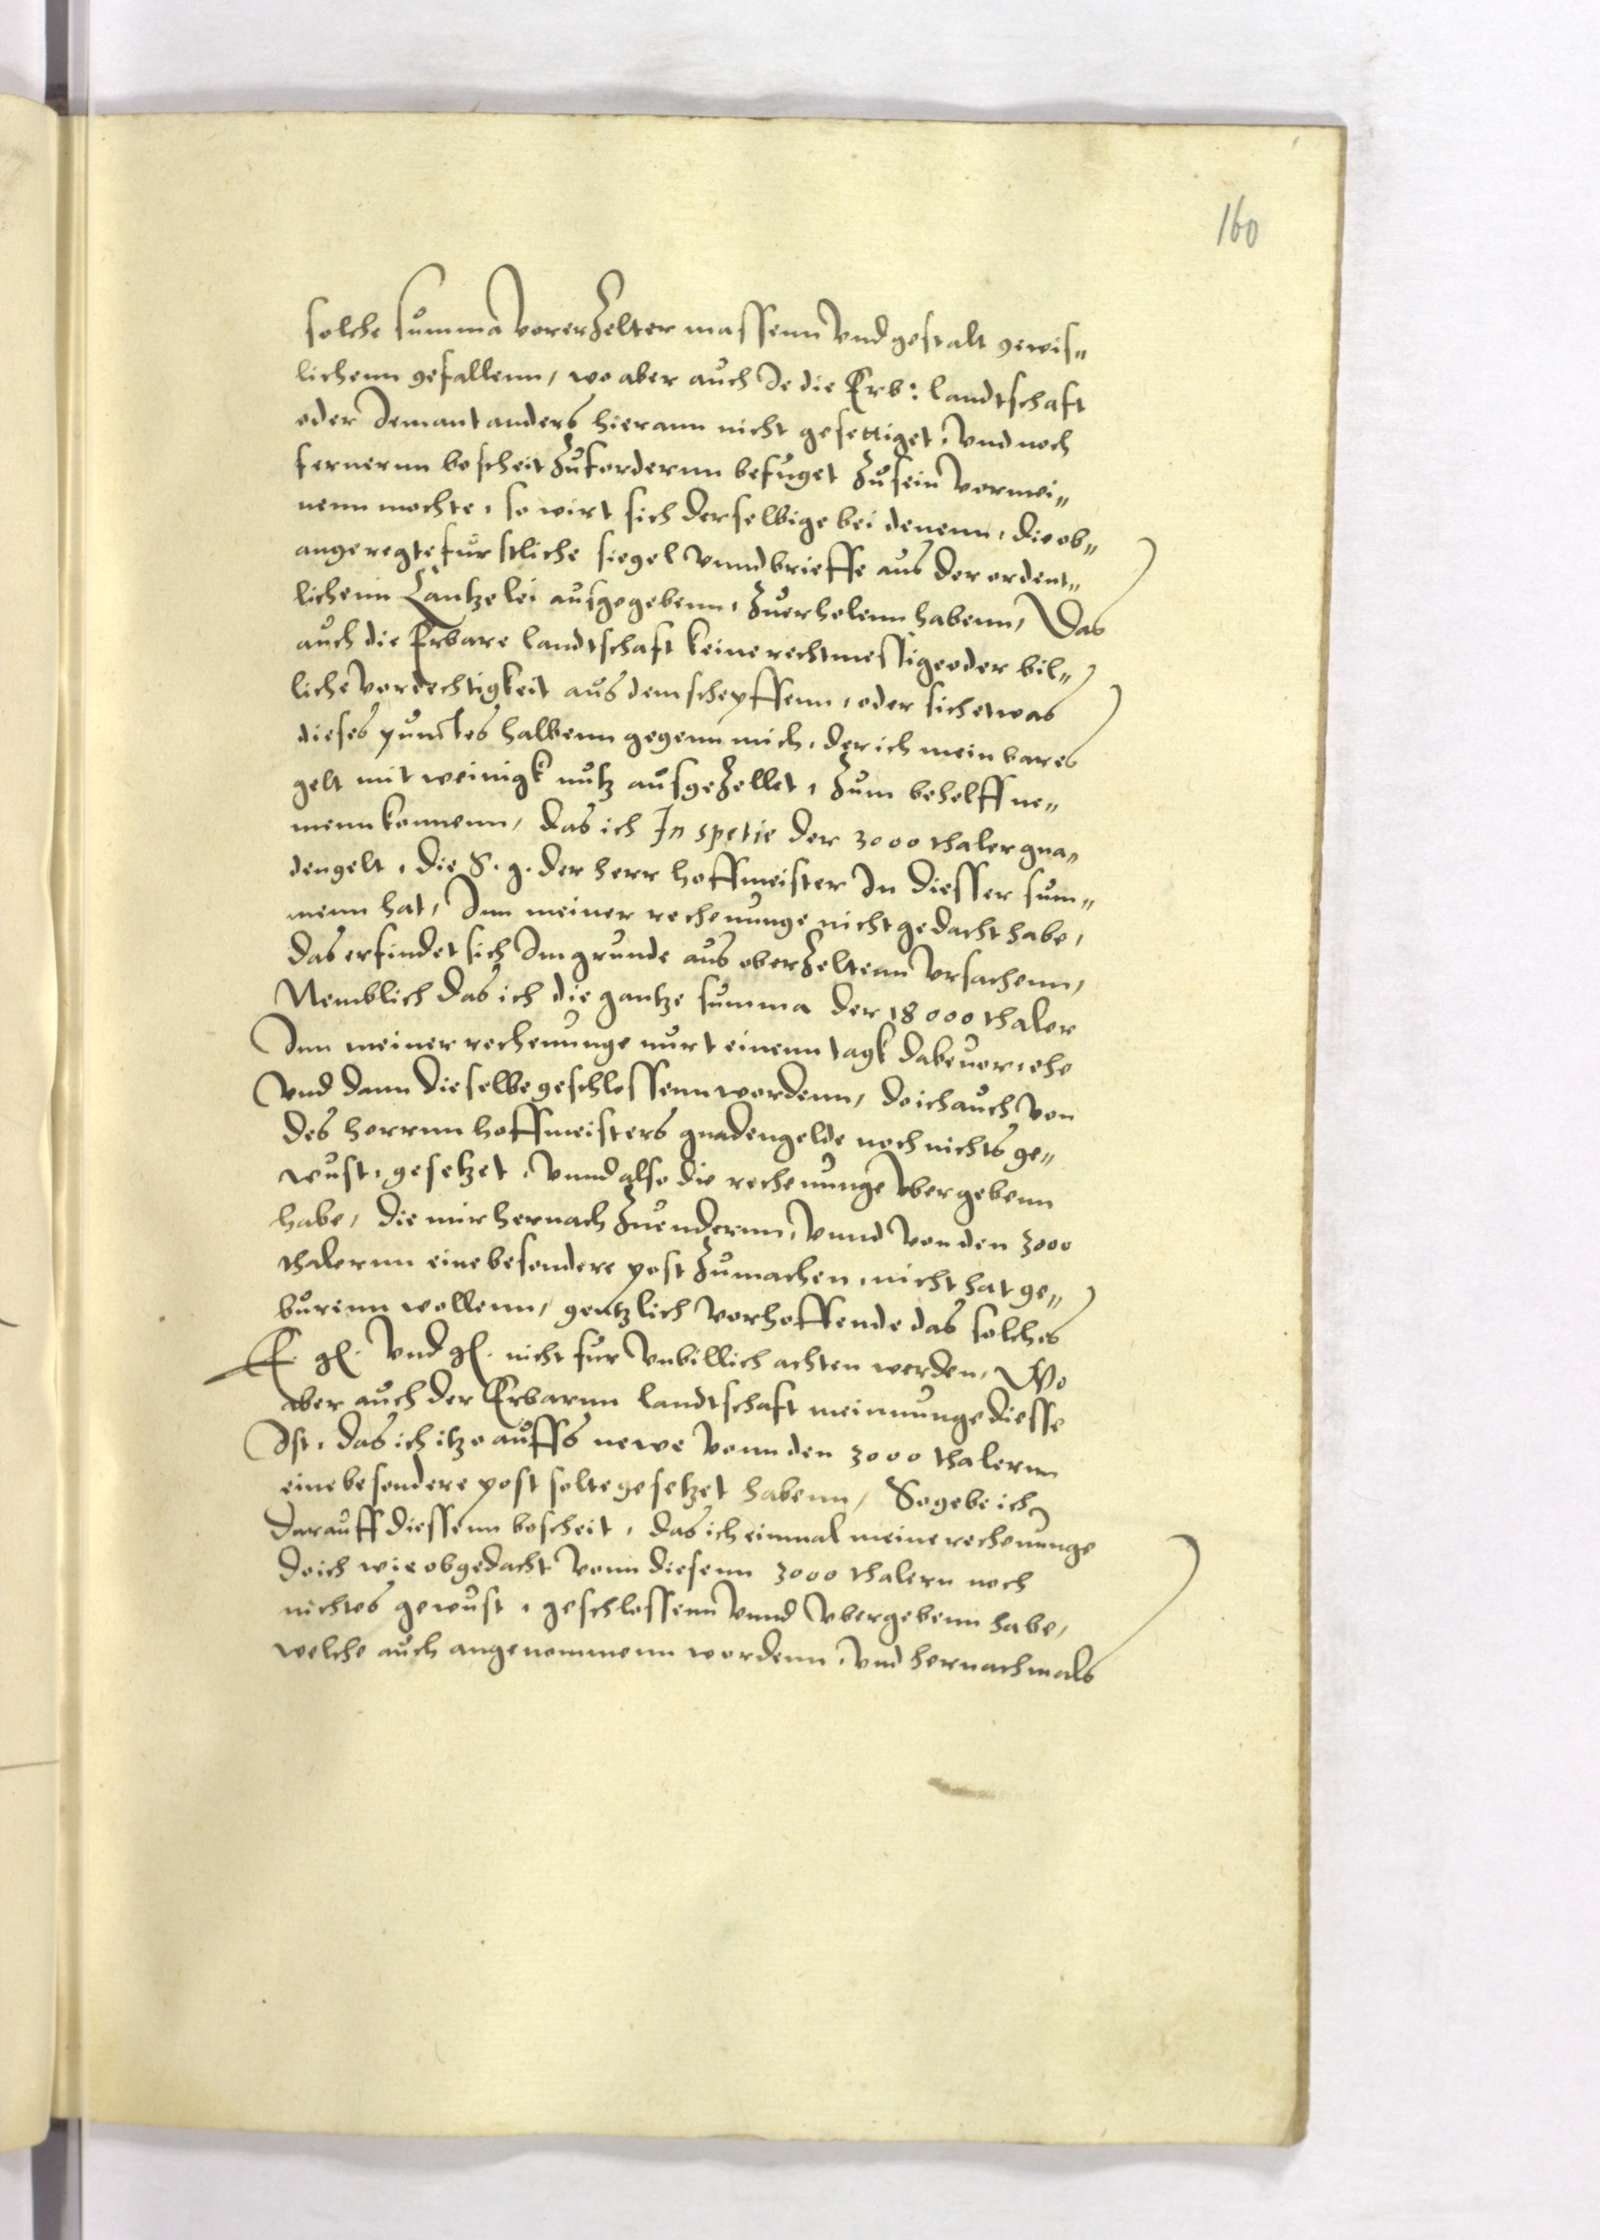 160
solche summa vorerzelter massenn vnd gestalt gewis„
lichenn gefallenn, wo aber auch Je die Erb: landtschaft
oder Jemant anders hierann nicht gesettiget, vnd noch
fernernn bescheit zufordernn befuget zusein vormei„
nenn mochte, so wirt sich derselbige bei denenn, die ob„
angeregte furstliche siegel vnnd brieffe aus der ordent„
lichenn Cantzelei ausgegebenn, zuerholenn habenn, Das
auch die Erbare landtschaft keine rechtmessige oder bil„
liche vordechtigkeit aus dem schepffenn, oder sich etwas
dieses punctes halbenn gegenn mich, der ich mein bares
gelt mit weinigk nutz ausgezellet, zum behelff ne„
menn konnenn, das ich In spetie der 3000 thaler gna„
dengelt, die S. g. der herr hoffmeister In diesser sum„
menn hat, Inn meiner rechenunge nicht gedacht habe,
das erfindet sich Im grunde aus oberzeltenn vrsachenn,
Nemblich das ich die gantze summa der 18000 thaler
Inn meiner rechenunge nurt einenn tagk dabeuor, ehe
vnd dann dieselbe geschlossenn wordenn, do ich auch von
des herrnn hoffmeisters gnadengelde noch nichts ge„
wust, gesetzet, vnnd also die rechenunge vbergebenn
habe, die mir hernach zuendernn, vnnd von den 3000
thalernn eine besondere post zumachen, nicht hat ge„
burenn wollenn, gentzlich vorhoffende das solches
E. gl. vnd gl. nicht fur vnbillich achten werden, Wo
aber auch der Erbarnn landtschaft meinnunge diesse
Ist, das ich itzo auffs newe vonn den 3000 thalernn
eine besondere post solte gesetzet habenn, So gebe ich
darauff diessenn bescheit, das ich einmal meine rechenunge
do ich wie obgedacht vonn diesenn 3000 thalern noch
nichtes gewust, geschlossenn vnnd vbergebenn habe,
welche auch angenommenn wordenn, vnd hernachmals